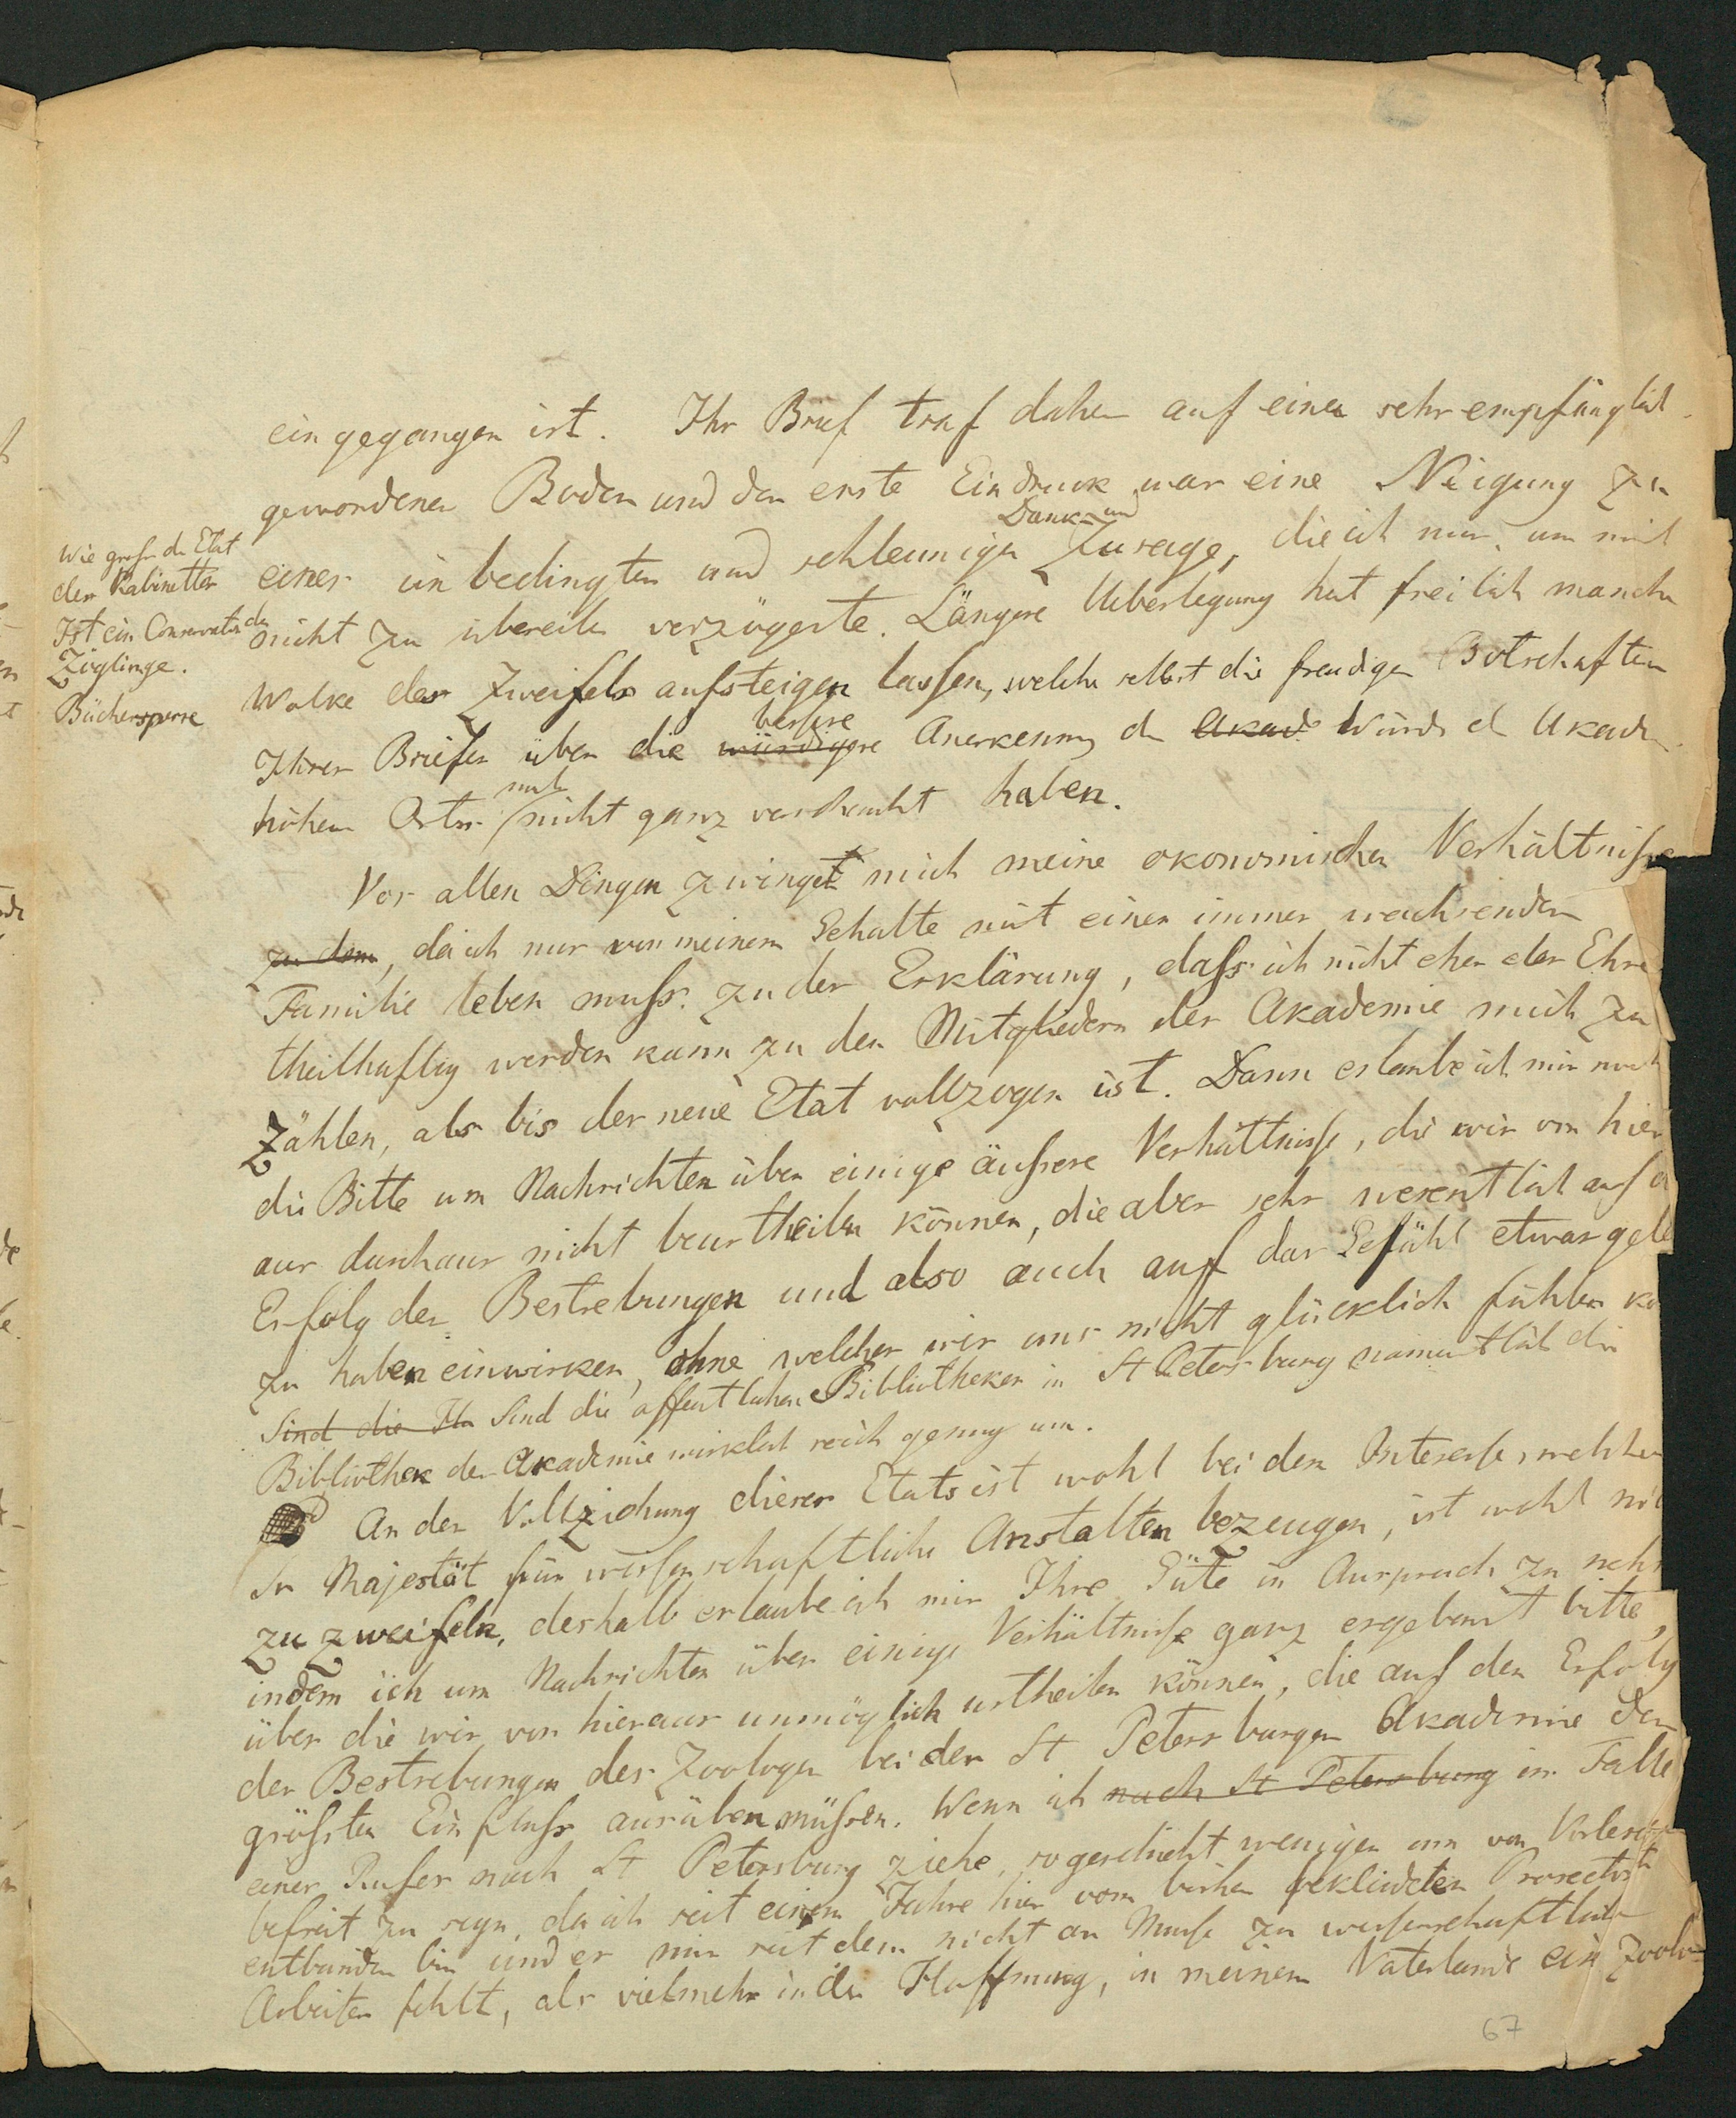 eingegangen ist. Ihr Brief traf daher auf einen sehr empfänglich
gewordenen Boden und der erste Eindruck war eine Neigung zu
Dank und
einer unbedingten und schleunigen Zusage, die ich nur, um mich
nicht zu übereilen verzögerte. Längere Ueberlegung hat freilich manche
Wolke des Zweifels aufsteigen lassen, welche selbst die freudigen Botschaften
bessere
Ihrer Briefen über die würdigere Anerkennung d Akad. Würde d Akade
höhern Orts noch nicht ganz verscheucht haben.
Wie gross der Etat
der Kabinetter
Ist ein Conservator da
Zöglinge.
Büchersperre
Vor allen Dingen zwinget mich meine okonomischen Verhältnisse
zu dem, da ich nur von meinem Gehalte mit einer immer wachsenden
Familie leben muss. zu der Erklärung, dass ich nicht eher der Ehre
theilhaftig werden kann zu den Mitgliedern der Akademie mich zu
zählen, als bis der neue Etat vollzogen ist. Dann erlaube ich mir noch
die Bitte um Nachrichten über einige äussere Verhältnisse, die wir von hier
aus durchaus nicht beurtheilen können, die aber sehr wesentlich auf d
Erfolg der Bestrebungen und also auch auf das Gefühl etwas gele
zu haben einwirken, ohne welches wir uns nicht glücklich fühlen kö
Sind die Sind die öffentlichen Bibliotheken in St Petersburg namentlich die
Bibliothek der Akademie wirklich reich genug um.
An der Vollziehung dieses Etats ist wohl bei dem Interesse, welches
Sr Majestät für wissenschaftliche Anstalten bezeugen, ist wohl nic
zu zweifeln, deshalb erlaube ich mir Ihre Güte in Anspruch zu neh
indem ich um Nachrichten über einige Verhältnisse ganz ergebenst bitte,
über die wir von hieraus unmöglich urtheilen können, die auf den Erfolg
der Bestrebungen des Zoologen bei der St Petersburger Akademie den
grössten Einfluss ausüben müssen. Wenn ich nach St Petersburg im Falle
eines Rufes nach St Petersburg ziehe, so geschieht weniger um von Vorles
befreit zu seyn, da ich seit einem Jahre hier vom bisher bekleideten Prosectorat
entbunden bin und es mir seitdem nicht an Musse zu wissenschaftlichen
Arbeiten fehlt, als vielmehr in der Hoffnung, in meinem Vaterlande ein Zoolo
67